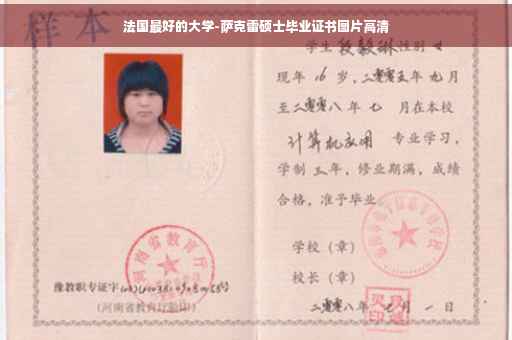 法国最好的大学-萨克雷硕士毕业证书图片高清
样本
学生段毅琳性别女
现年16岁，二零零五年九月
至二零零八年七 月在本校
计算机应用 专业学习，
学制三年，修业期满，成绩
合格，准予毕业。
学校（章）
校长（章）
二零零八年七月一日
河南省教育厅
豫教职专证字
（河南省教育厅验印）